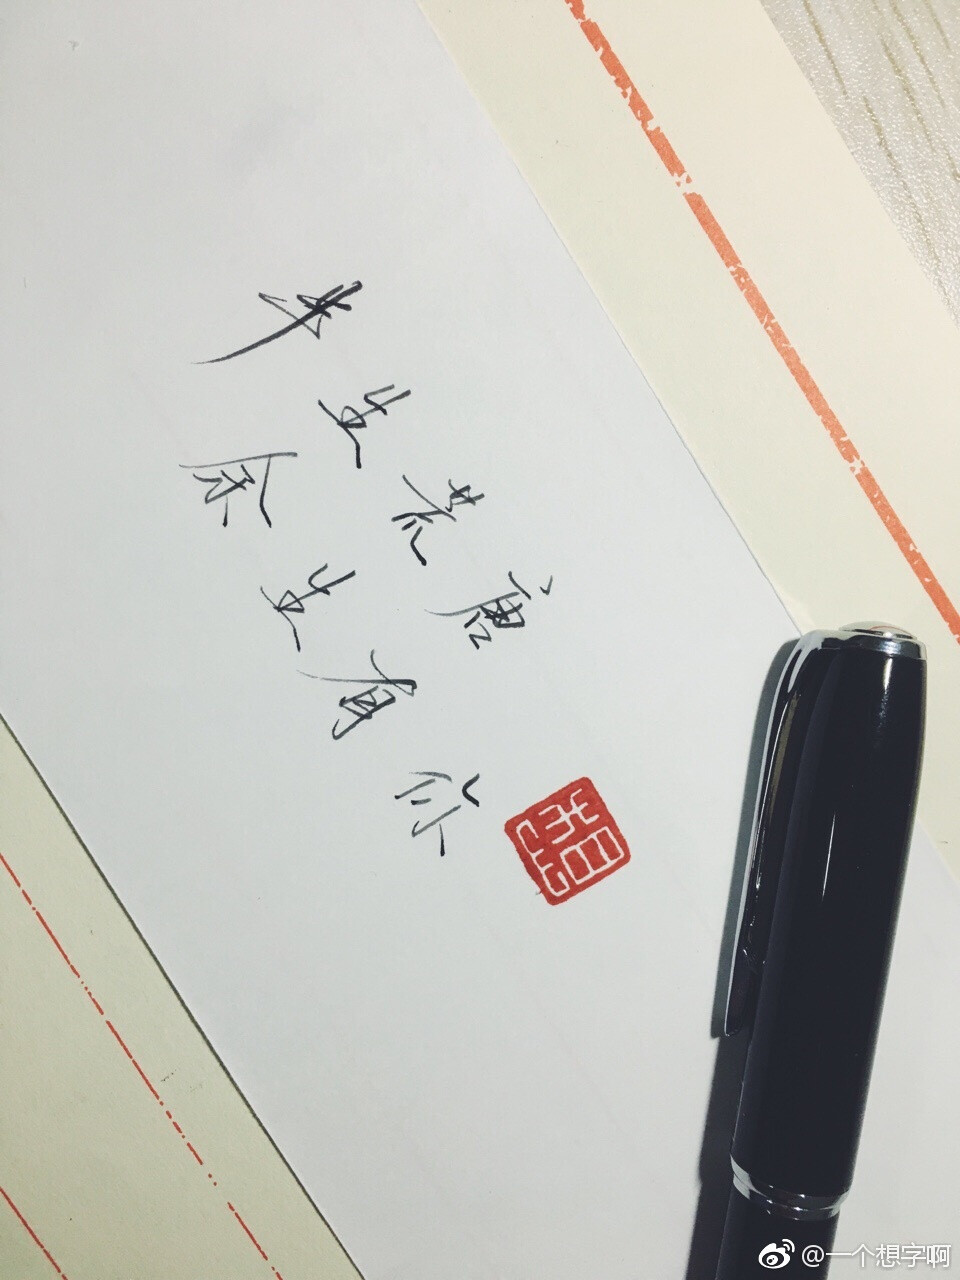 半生荒唐
余生有你
@一个想字啊